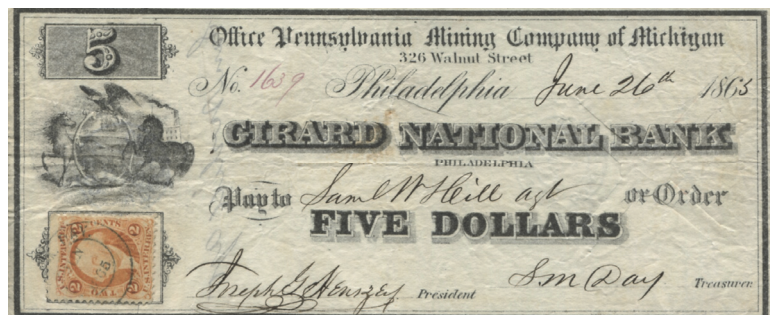 5
Office Pennsylvania Mining Company of Michigan
326 Walnut Street
No. 1639 Philadelphia June 26th 1865
GIRARD NATIONAL BANK
PHILADELPHIA
Pay to Saml W Hill agt or Order
FIVE DOLLARS
Joseph G Henszey President S M Day Treasurer.
2 CENTS 2
TWO